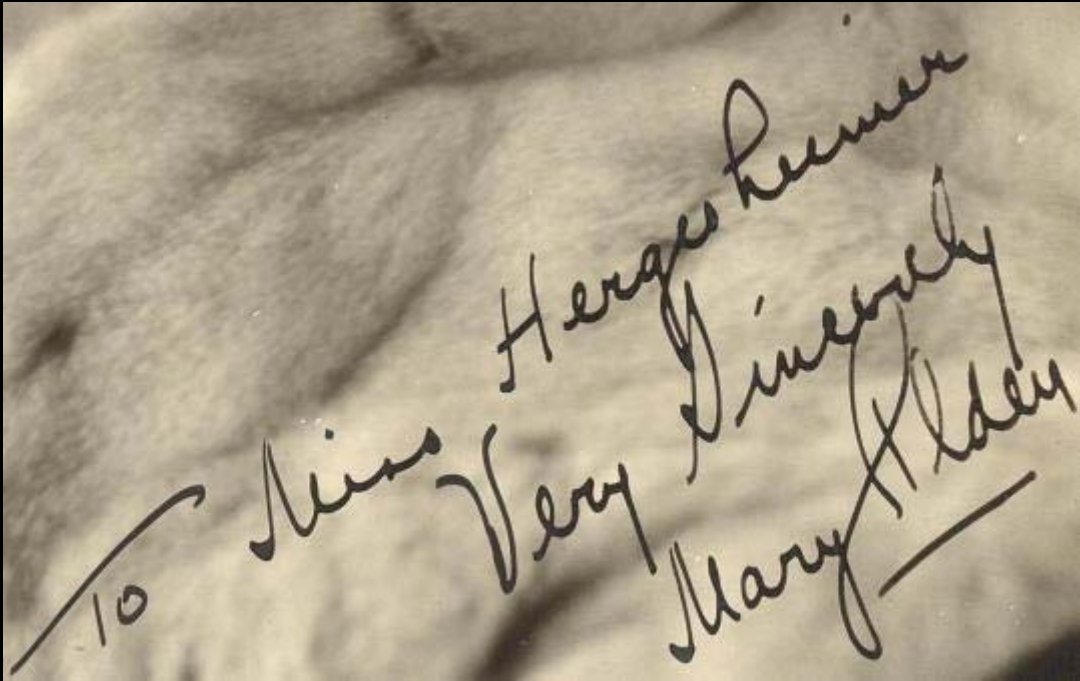 To Miss Hergesheimer
Very Sincerely
Mary Alden